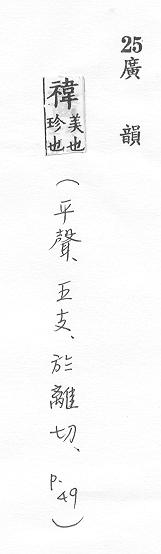 25廣韻
禕美也珍也(平聲、五支、於離切、p.49)